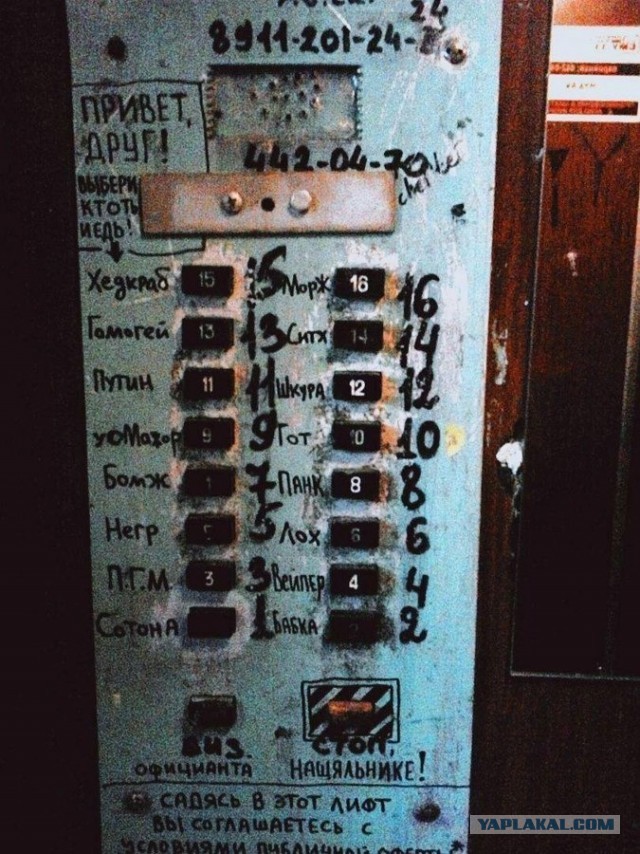 24
8911-201-24-
ПРИВЕТ,
ДРУГ!
442-04-70
ВЫБЕРИ
КТО ТЫ
И ЕДЬ!
Хедкраб 15 15 Морж 16 16
Гомогей 13 13 Ситх 14 14
Путин 11 11 Шкура 12 12
9 9 Гот 10 10
Бомж 7 Панк 8 8
Негр 5 5 Лох 6 6
П.Г.М. 3 3 Вейпер 4 4
Сотона 1 Бабка 2 2
ВЫЗ. СТОП,
ОФИЦИАНТА НАЩЯЛЬНИКЕ!
САДЯСЬ В ЭТОТ ЛИФТ
ВЫ СОГЛАШАЕТЕСЬ С
УСЛОВИЯМИ ПУБЛИЧНОЙ ОФЕРТЫ
YAPLAKAL.COM